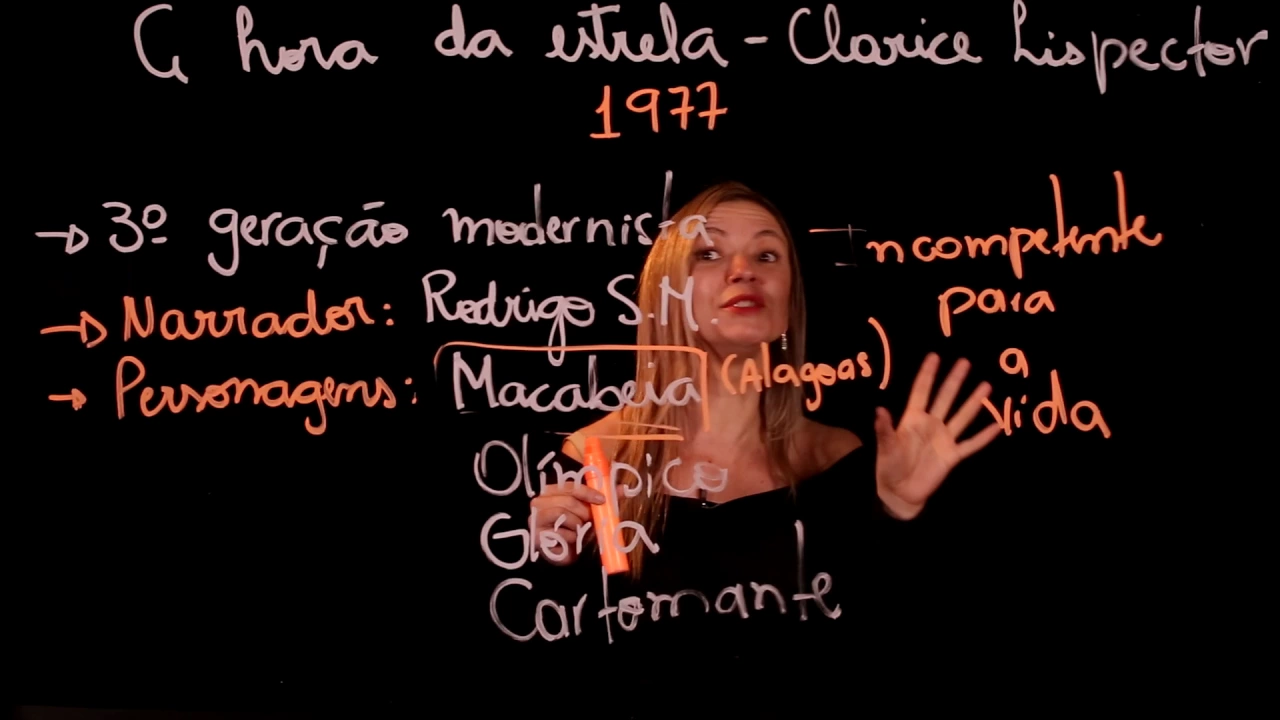 A hora da estrela - Clarice Lispector
1977
→ 3º geração modernista
→ Narrador: Rodrigo S.M.
→ Personagens: Macabeia (Alagoas)
Olímpico
Glória
Cartomante
Incompetente
para
a
vida